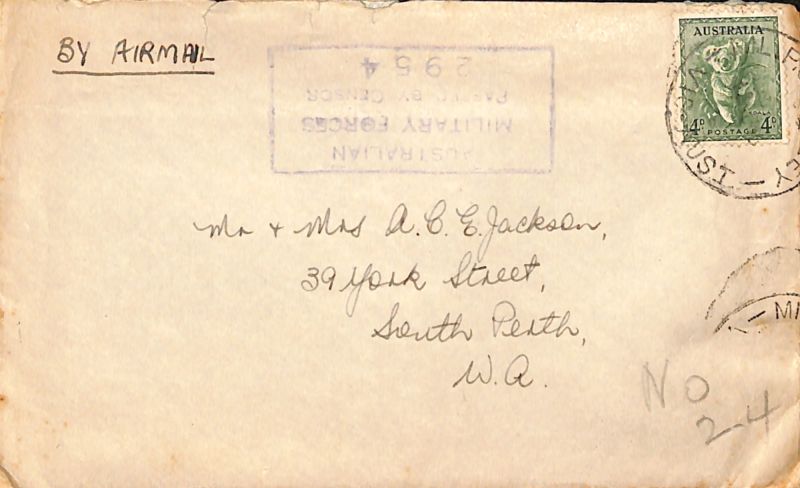 BY AIRMAIL
AUSTRALIAN
MILITARY FORCES
PASSED BY CENSOR
2954
AUSTRALIA
KOALA
4D POSTAGE 4D
Mr + Mrs A. C. E. Jackson,
39 York Street,
South Perth,
W.A.
No
24